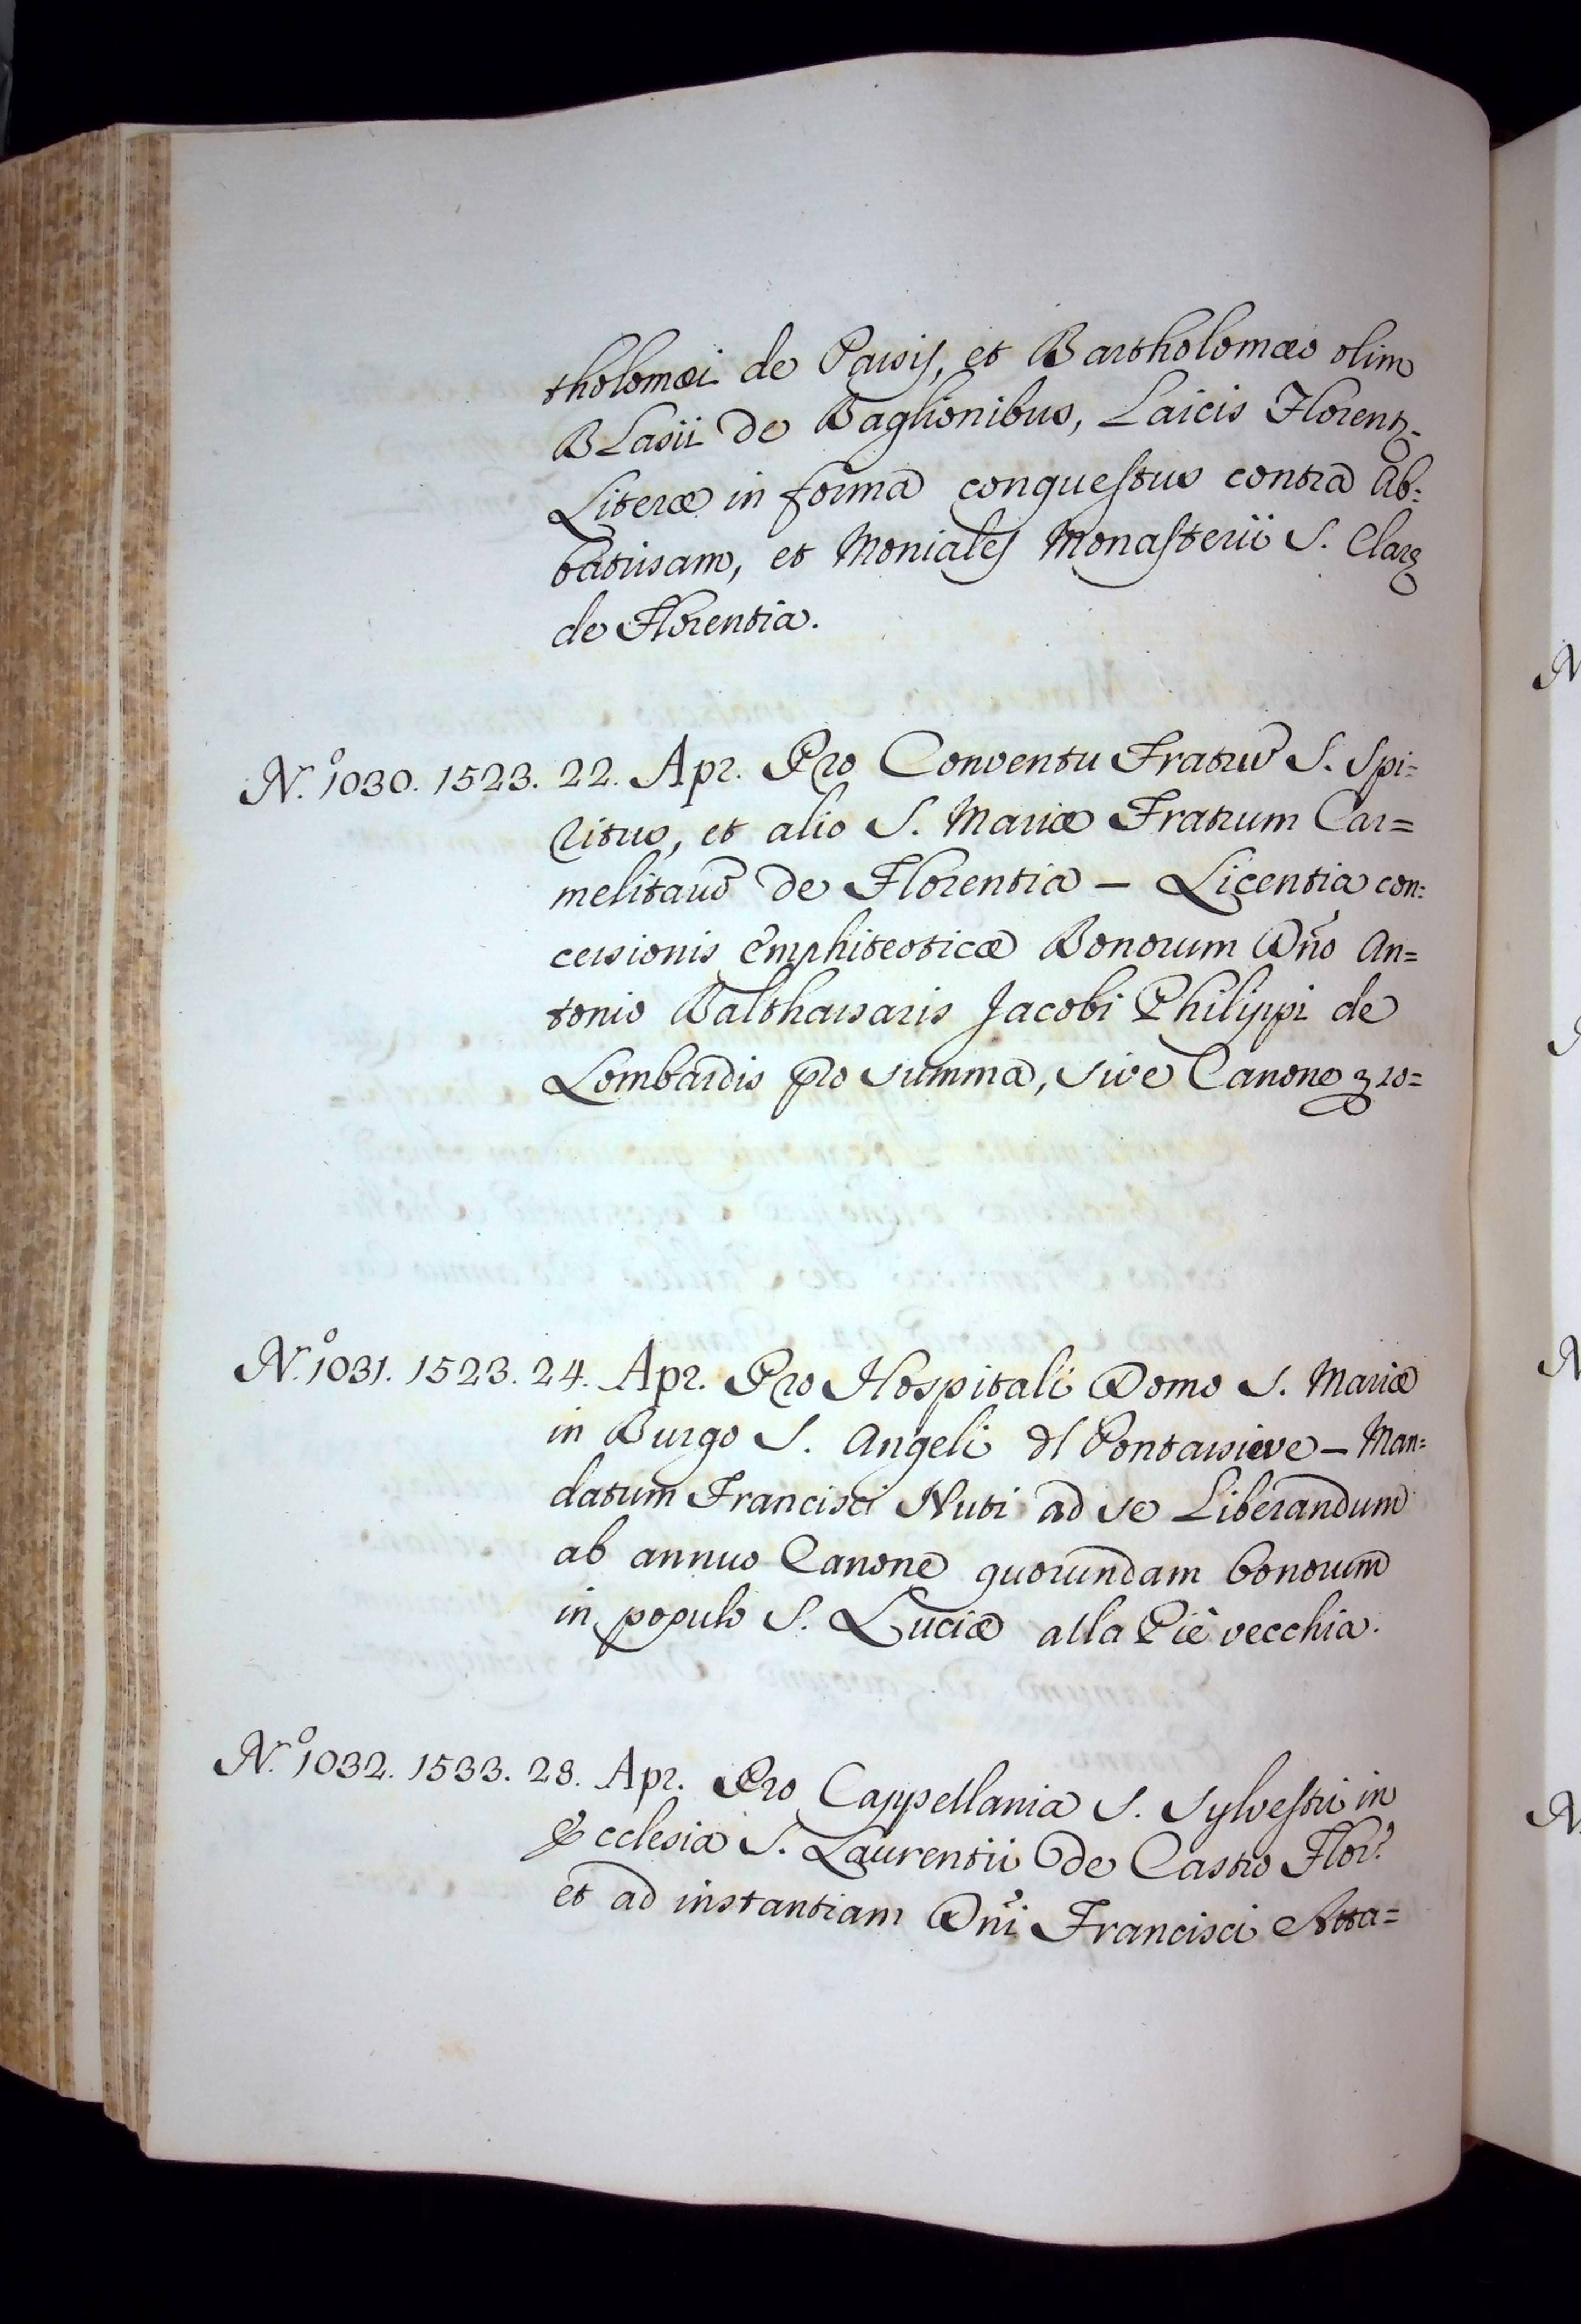 tholomæi de Passis, et Bartholomæo olim
Blasii de Baglionibus, Laicis Florent.
Literæ in forma conquestus contra Ab=
batissam, et Moniales Monasterii S. Claræ
de Florentia.
N.º 1030. 1523. 22. Apr. Pro Conventu Fratrũ S. Spi=
ritus, et alio S. Mariæ Fratrum Car=
melitarũ de Florentia – Licentia con=
cessionis Emphiteoticæ Bonorum Dño An=
tonio Balthassaris Jacobi Philippi de
Lombardis pro summa, sive Canone
N.º 1031. 1523. 24. Apr. Pro Hospitali Domo S. Mariæ
in Burgo S. Angeli dl Pontassieve – Man=
datum Francisci Nuti ad se Liberandum
ab annuo Canone quorundam bonorum
in populo S. Luciæ alla Piè vecchia.
N.º 1032. 1533. 28. Apr. Pro Cappellania S. Sylvestri in
Ecclesia S. Laurentii de Castro Flor.
et ad instantiam Dñi Francisci Atta=
N
N
N